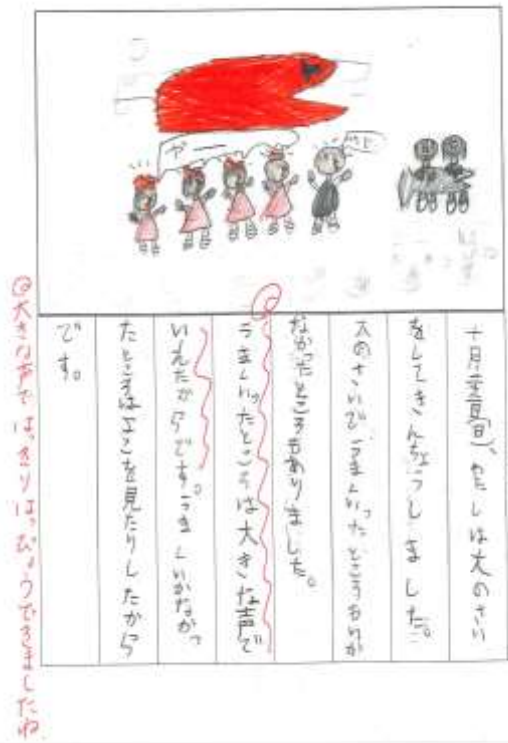 わたしは大のさい
をしてきんちょうしました。
大のさいで、うまくいったところもいか
なかったところもありました。
うまくいったところは大きな声で
いえたからです。うまくいかなかっ
たところはよこを見たりしたから
です。
大きな声ではっきりはっぴょうできましたね